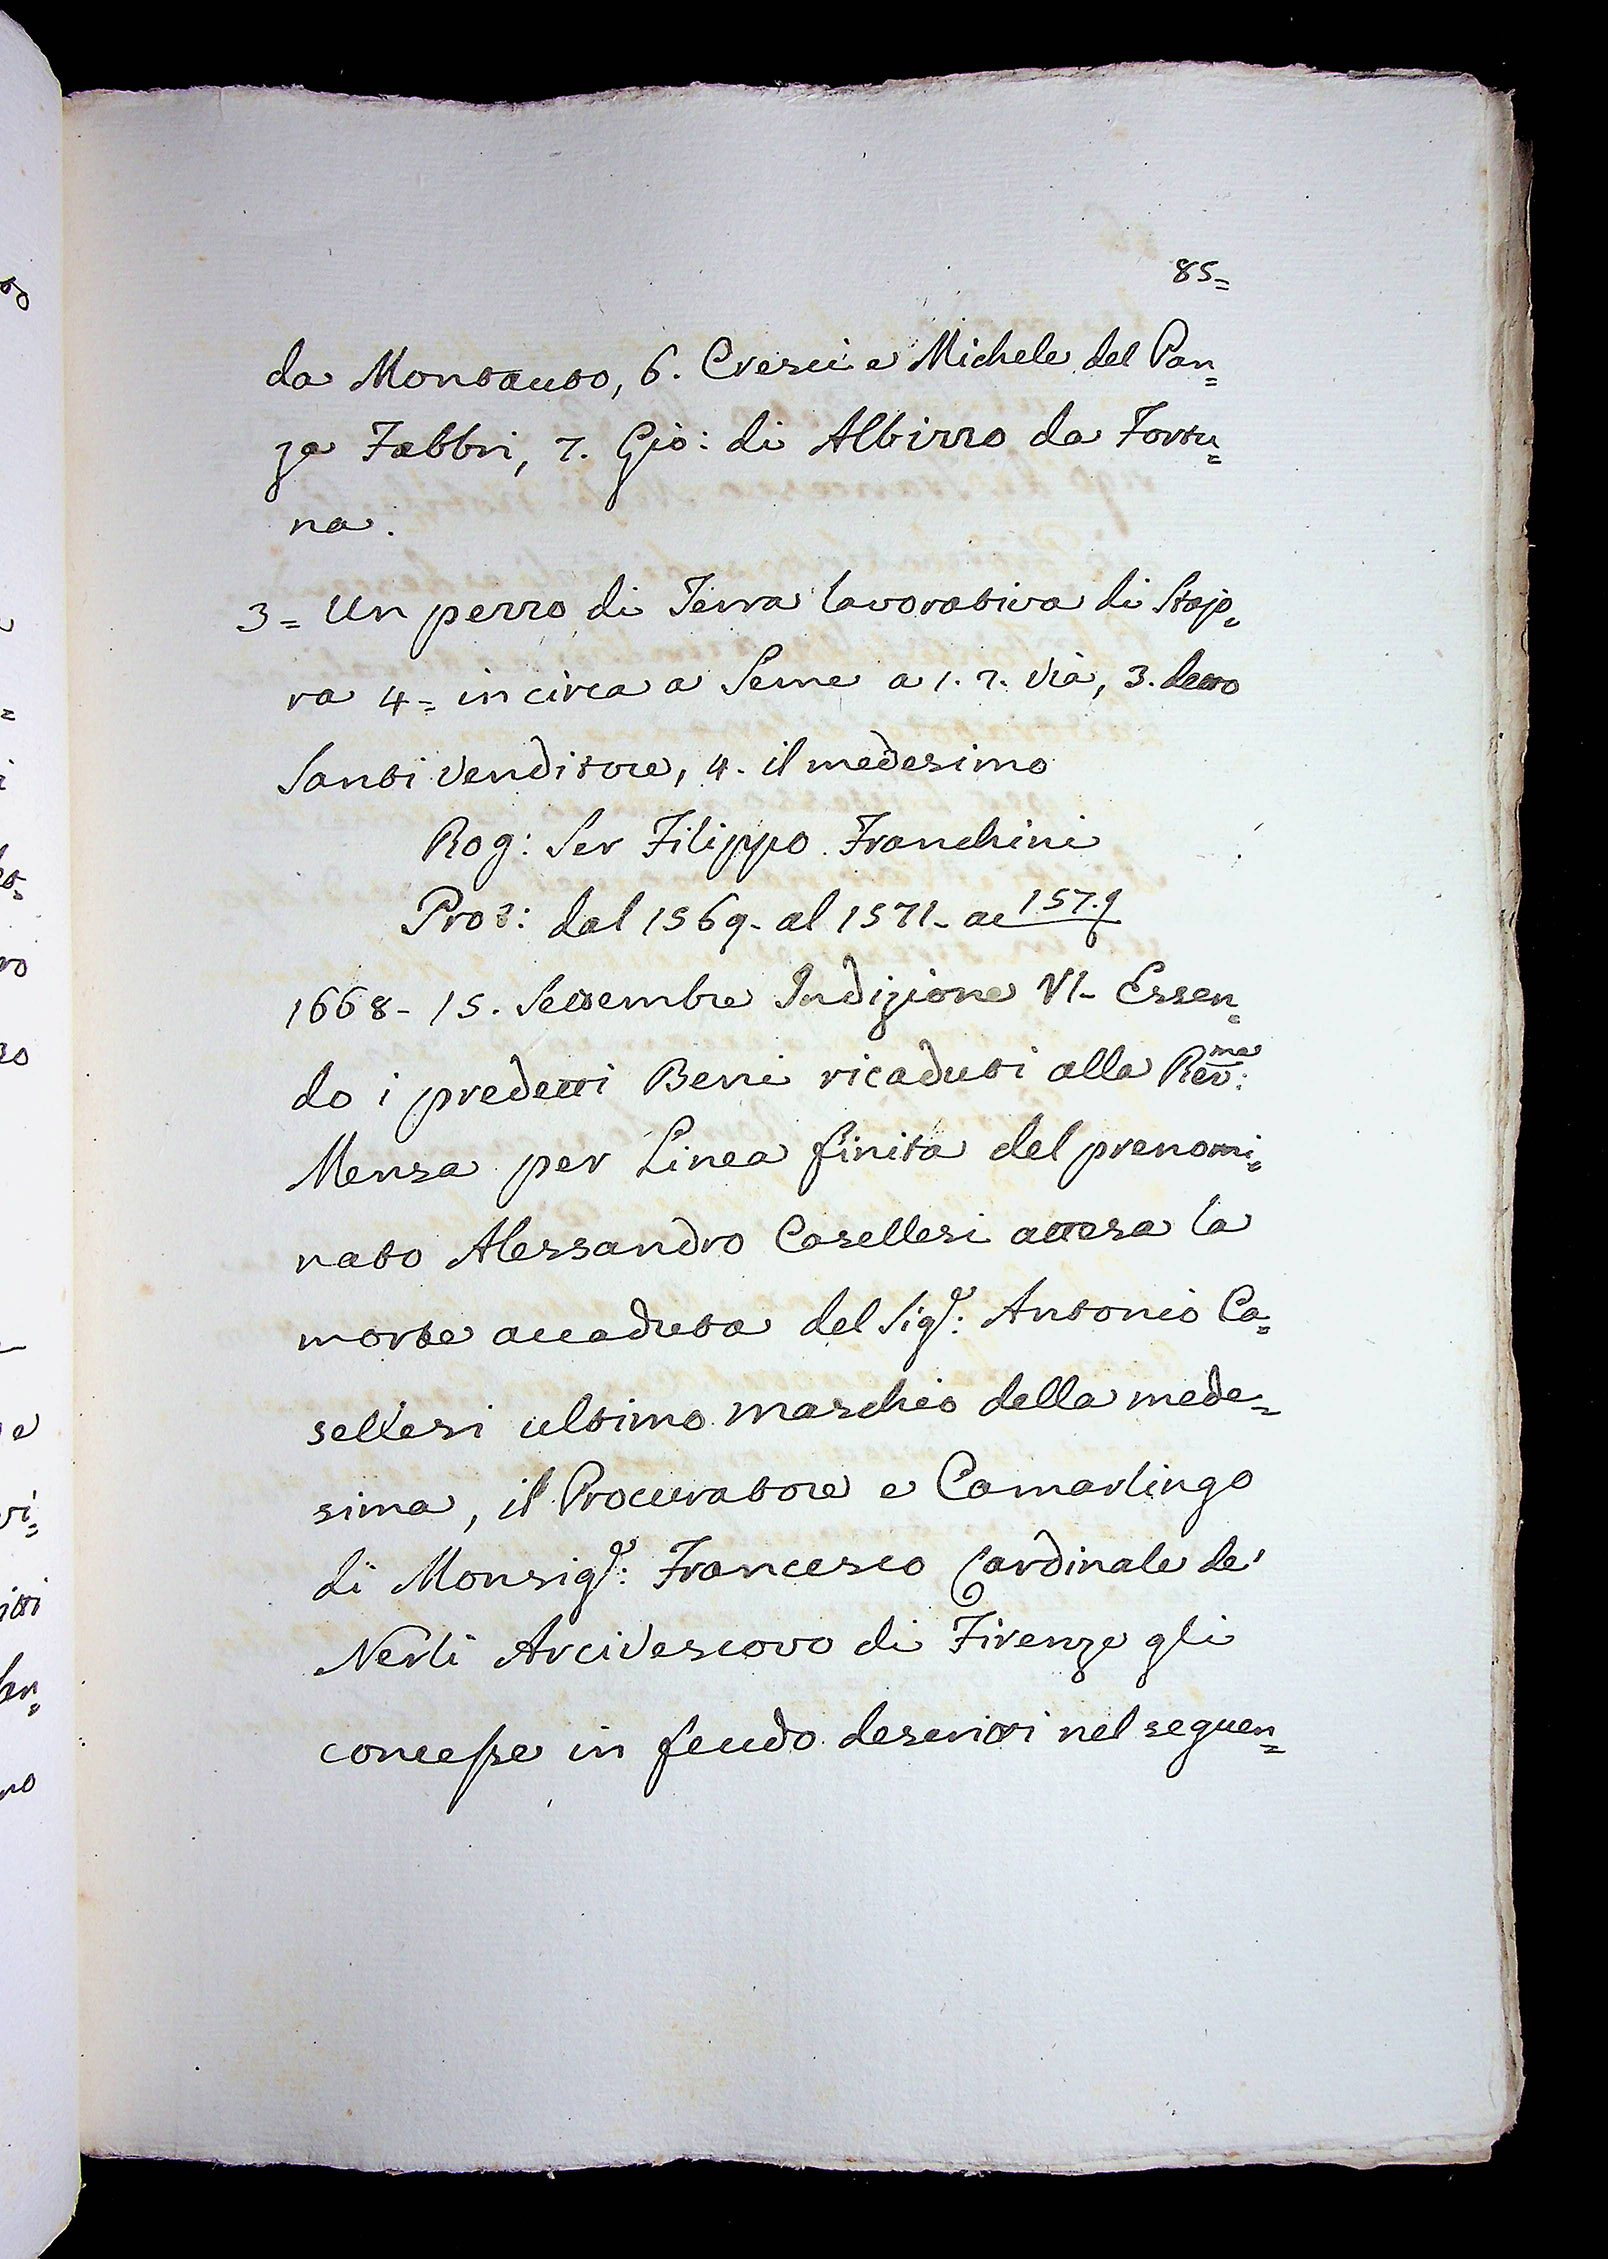 85=
da Montauto, 6. Cresci e Michele del Pan=
za Fabbri, 7. Gio: di Albizzo da Fortu=
na.
3= Un pezzo di Terra lavorativa di Stajo=
ra 4= in circa a Seme a 1. 2. Via, 3. detto
Santi venditore, 4. il medesimo
Rog: Ser Filippo Franchini
Pro3: dal 1569- al 1571- ac 157.9
1668- 15. Settembre Indizione VI- Essen=
do i predetti Beni ricaduti alla Rev:ma
Mensa per Linea finita del prenomi=
nato Alessandro Casellesi attesa la
morte accaduta del Sigr: Antonio Ca=
sellesi ultimo maschio della mede=
sima, il Procuratore e Camarlingo
di Monsigr: Francesco Cardinale de'
Nerli Arcivescovo di Firenze gli
concesse in feudo descritti nel seguen=